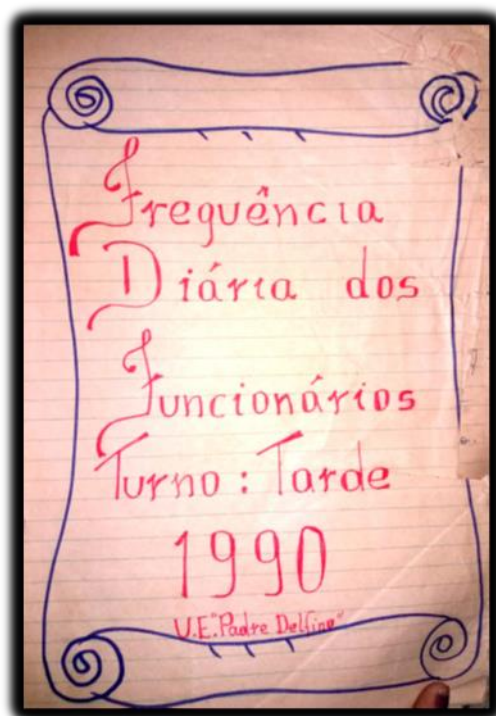 Frequência
Diária dos
Funcionários
Turno: Tarde
1990
U.E. "Padre Delfino"